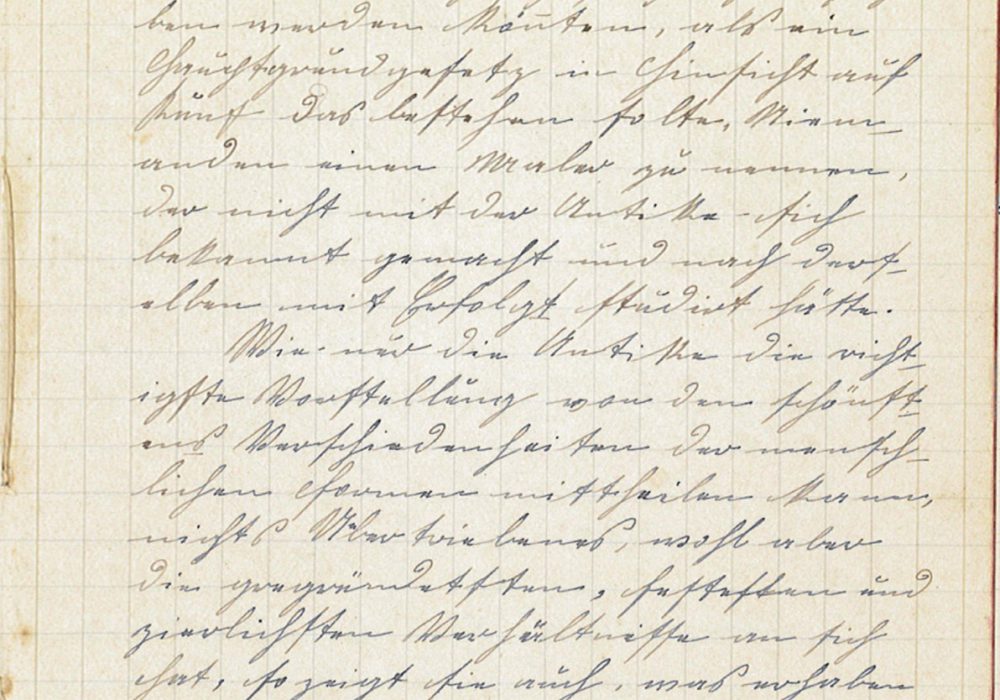 ben werden könnten, als ein
Hauptgrundgesetz in Hinsicht auf
Kunst das bestehen solte, Niem-
anden einen Maler zu nennen,
der nicht mit der Antike sich
bekannt gemacht und nach ders-
elben mit Erfolgt studirt hätte.
Wie nur die Antike die richt-
igste Vorstellung von den schönst-
ens Verschiedenheiten der mensch-
lichen Formen mittheilen kann,
nichts Übertriebenes, wohl aber
die gegründetsten, festesten und
zierlichsten Verhältnisse an sich
hat, so zeigt sie auch, was erhaben